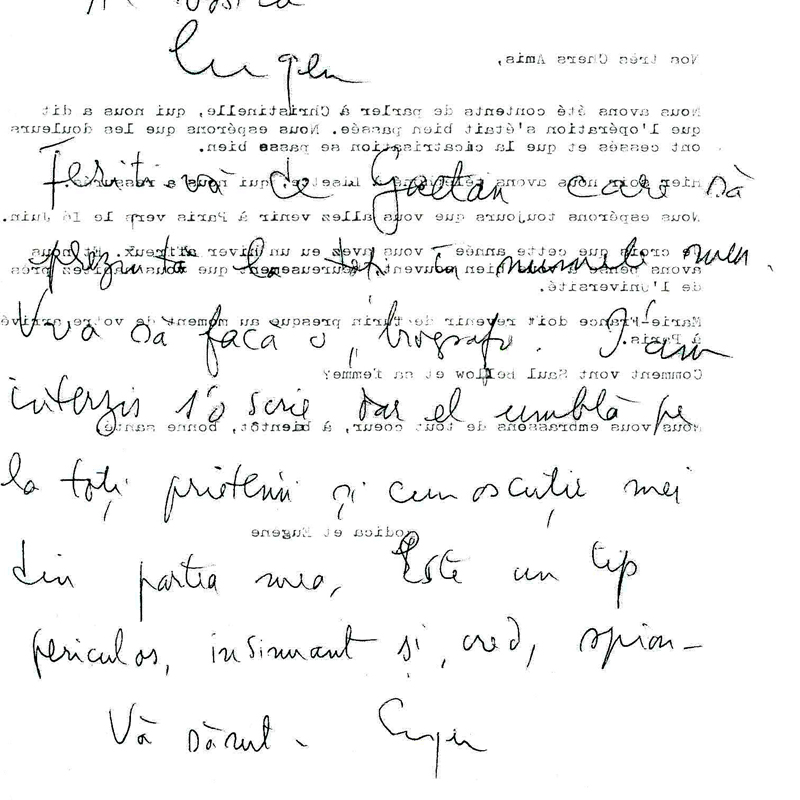 Eugen
Feriți-vă de Gaetan care să
prezintă la toți în numele meu.
Vrea să facă o biografie. I-am
interzis s'o scrie dar el umblă pe
la toți prietenii și cunoscuții mei
din partea mea, Este un tip
periculos, insinuant și, cred, spion-
Vă sărut. Eugen
Nos très Chers Amis,
Nous avons été contents de parler à Christinelle, qui nous a dit
que l'opération s'était bien passée. Nous espérons que les douleurs
ont cessés et que la cicatrisation se passe bien.
Hier soir nous avons téléphoné à Lisette, qui nous a rassurés.
Nous espérons toujours que vous allez venir à Paris vers le 16 Juin.
Je crois que cette année vous avez eu un hiver affreux. Et nous
avons pensé bien souvent heureusement que vous habitez près
de l'Université.
Marie-France doit revenir de Turin presque au moment de votre arrivée
à Paris.
Comment vont Saul Bellow et sa femme?
Nous vous embrassons de tout coeur, à bientôt, bonne santé,
Rodica et Eugene